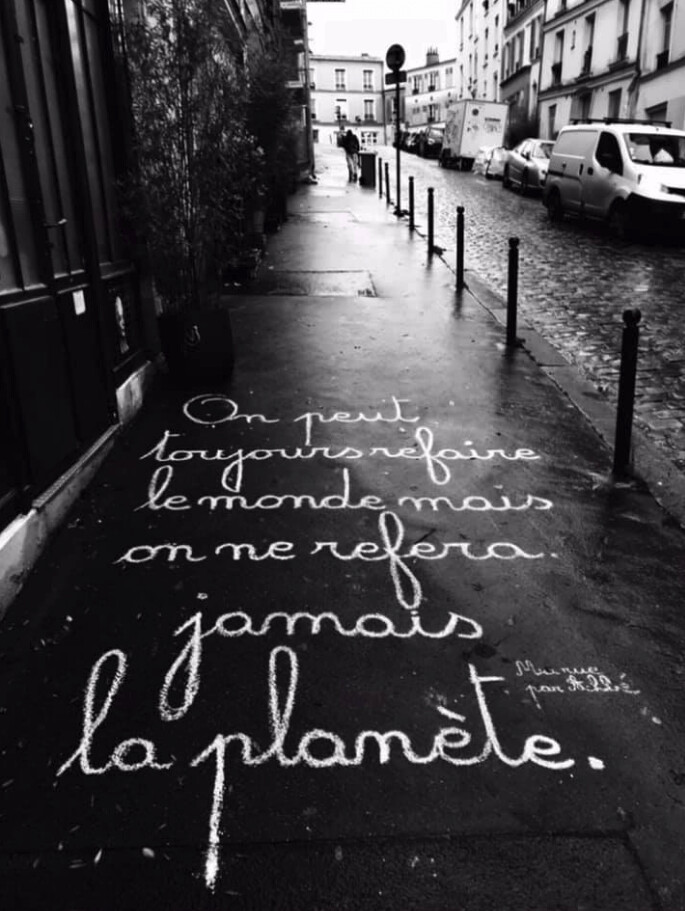 On peut
toujours refaire
le monde mais
on ne refera.
jamais
la planète.
Ma rue
par Achbé